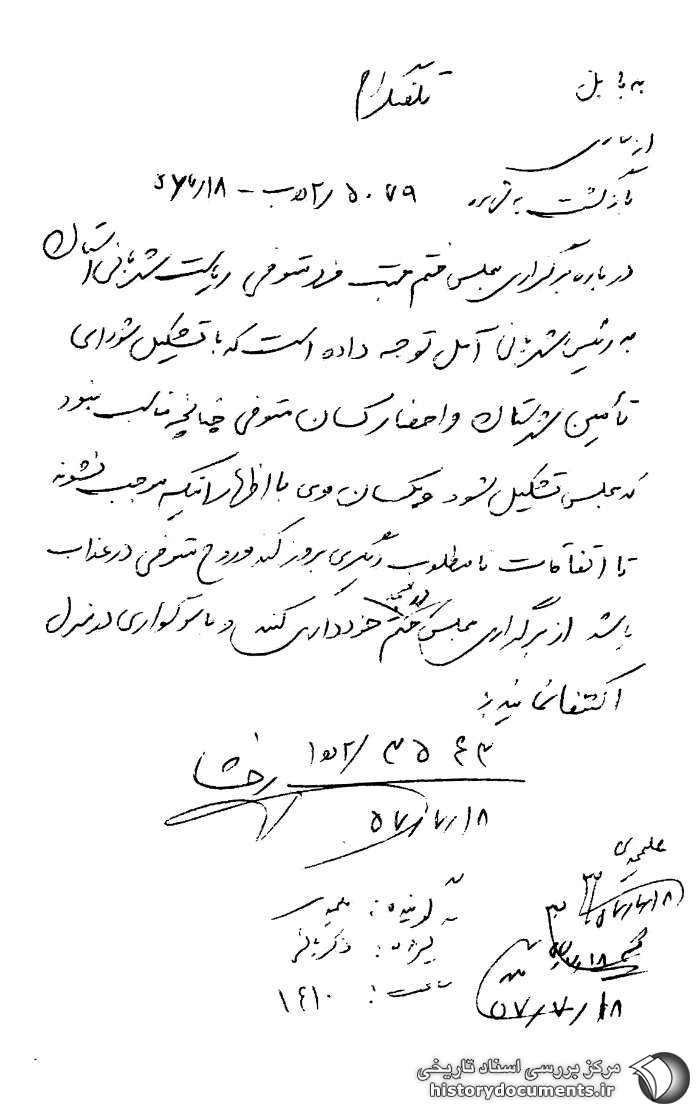 به بابل
تلفنگرام
از ساری
بازگشت به شماره ۵۰۷۹/۲ه‍ب - ۱۸/۷/
درباره برگزاری مجلس ختم جهت فرد متوفی ریاست شهربانی استان
به رئیس شهربانی آمل توجه داده است که با تشکیل شورای
تأمین شهرستان و احضار کسان متوفی چنانچه مناسب نبود
که مجلس تشکیل شود و کسان وی با اظهاراتیکه موجب نشوند
تا اتفاقات نامطلوب دیگری بروز کند و روح متوفی در عذاب
باشد از برگذاری مجلس ختم در مسجد خودداری کنند و با سوگواری در منزل
اکتفا نمایند
۳۵۴۳/۲ه‍۱ رخشا
۵۷/۷/۱۸
گوینده:
گیرنده: ذکریائی
ساعت: ۱۴۱۰
۵۷/۷/۱۸
۵۷/۷/۱۸
مرکز بررسی اسناد تاریخی
historydocuments.ir